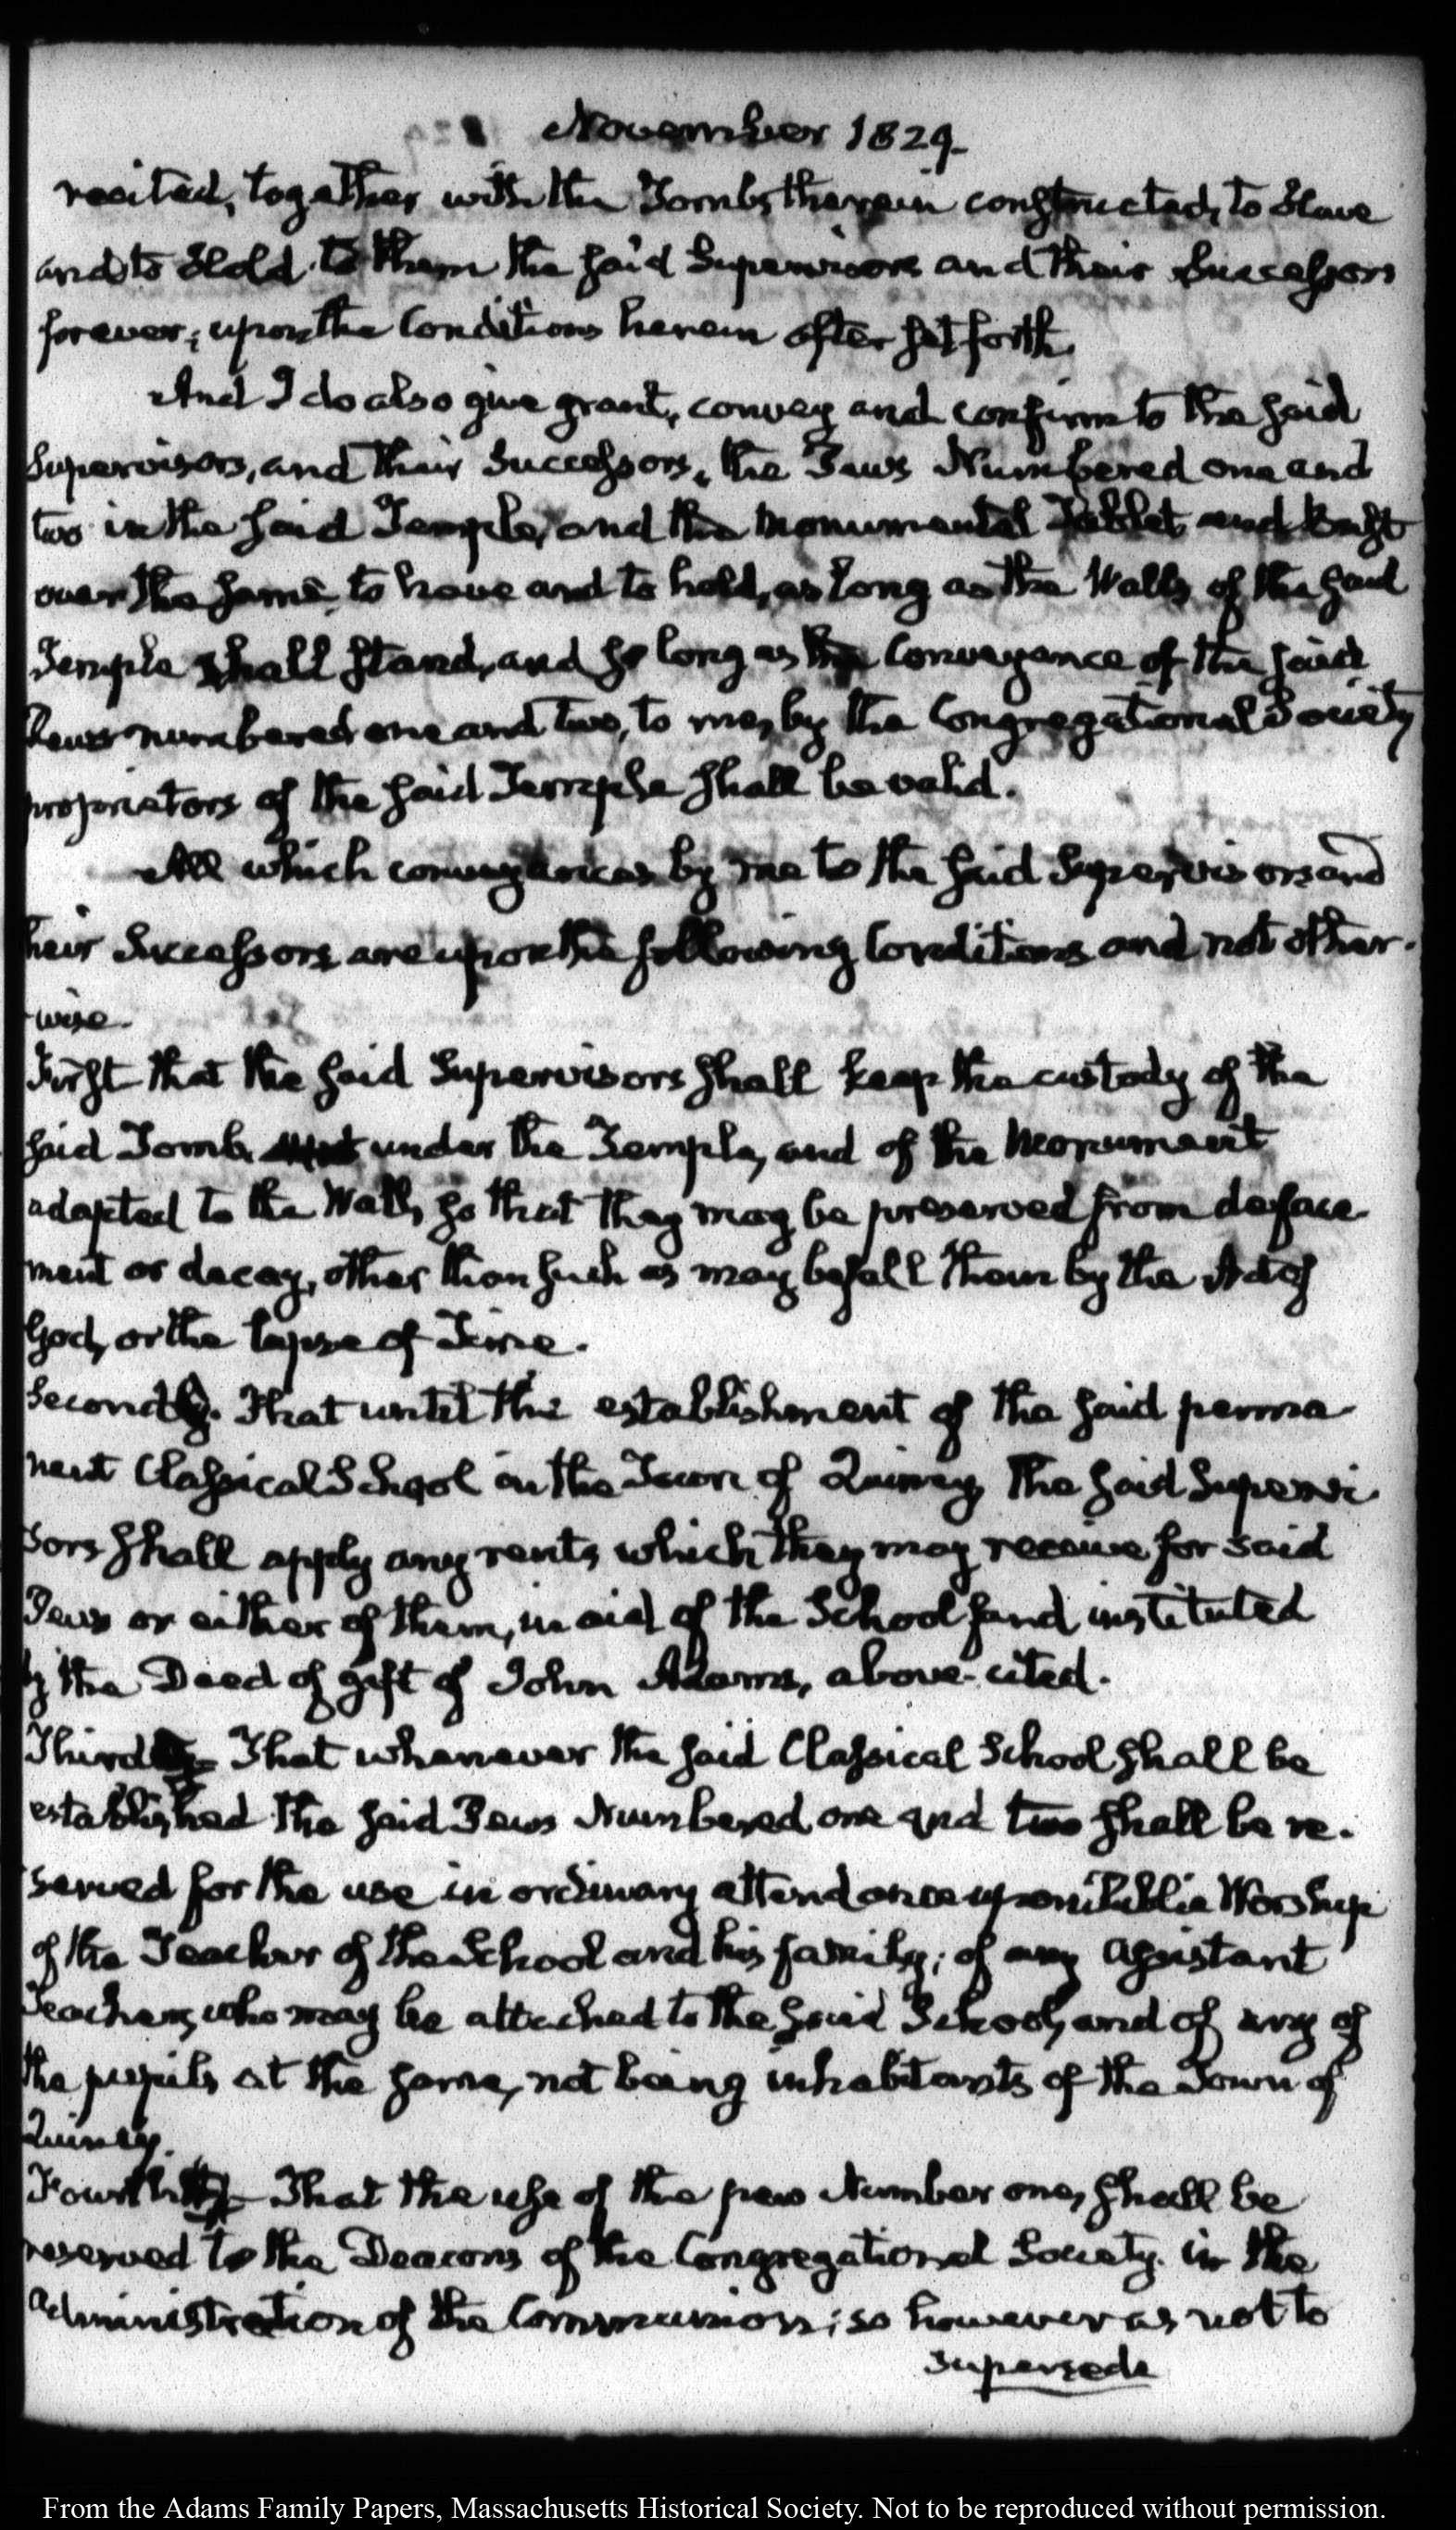 November 1829.
recited, together with the Tombs therein constructed, to Have
and to Hold to them the said Supervisors and their Successors
forever; upon the Conditions herein after set forth.
And I do also give grant, convey and confirm to the said
Supervisors, and their Successors, the Pews Numbered one and
two in the said Temple, and the Monumental Tablet and Bust
over the same, to have and to hold, as long as the Walls of the said
Temple shall stand, and so long as the Conveyance of the said
Pews numbered one and two, to me, by the Congregational Society
proprietors of the said Temple shall be valid.
All which conveyances by me to the said Supervisors and
their Successors are upon the following Conditions and not other-
wise.
First that the said Supervisors shall keep the custody of the
said Tomb under the Temple, and of the Monument
adapted to the Wall, so that they may be preserved from deface-
ment or decay, other than such as may befall them by the Act of
God, or the lapse of Time.
Secondly. That until the establishment of the said perma-
nent Classical School in the Town of Quincy, the said Supervi-
sors shall apply any rents, which they may receive for said
Pews or either of them, in aid of the School fund instituted
by the Deed of gift of John Adams, above-cited.
Third That whenever the said Classical School shall be
established the said Pews Numbered one and two shall be re-
served for the use in ordinary attendance upon Public Worship
of the Teacher of the School and his family; of any assistant
Teacher, who may be attached to the said School, and of any of
the pupils at the same, not being inhabitants of the Town of
Quincy.
Fourth That the use of the pew Number one, shall be
reserved to the Deacons of the Congregational Society in the
administration of the Communion; so however as not to
supersede
From the Adams Family Papers, Massachusetts Historical Society. Not to be reproduced without permission.